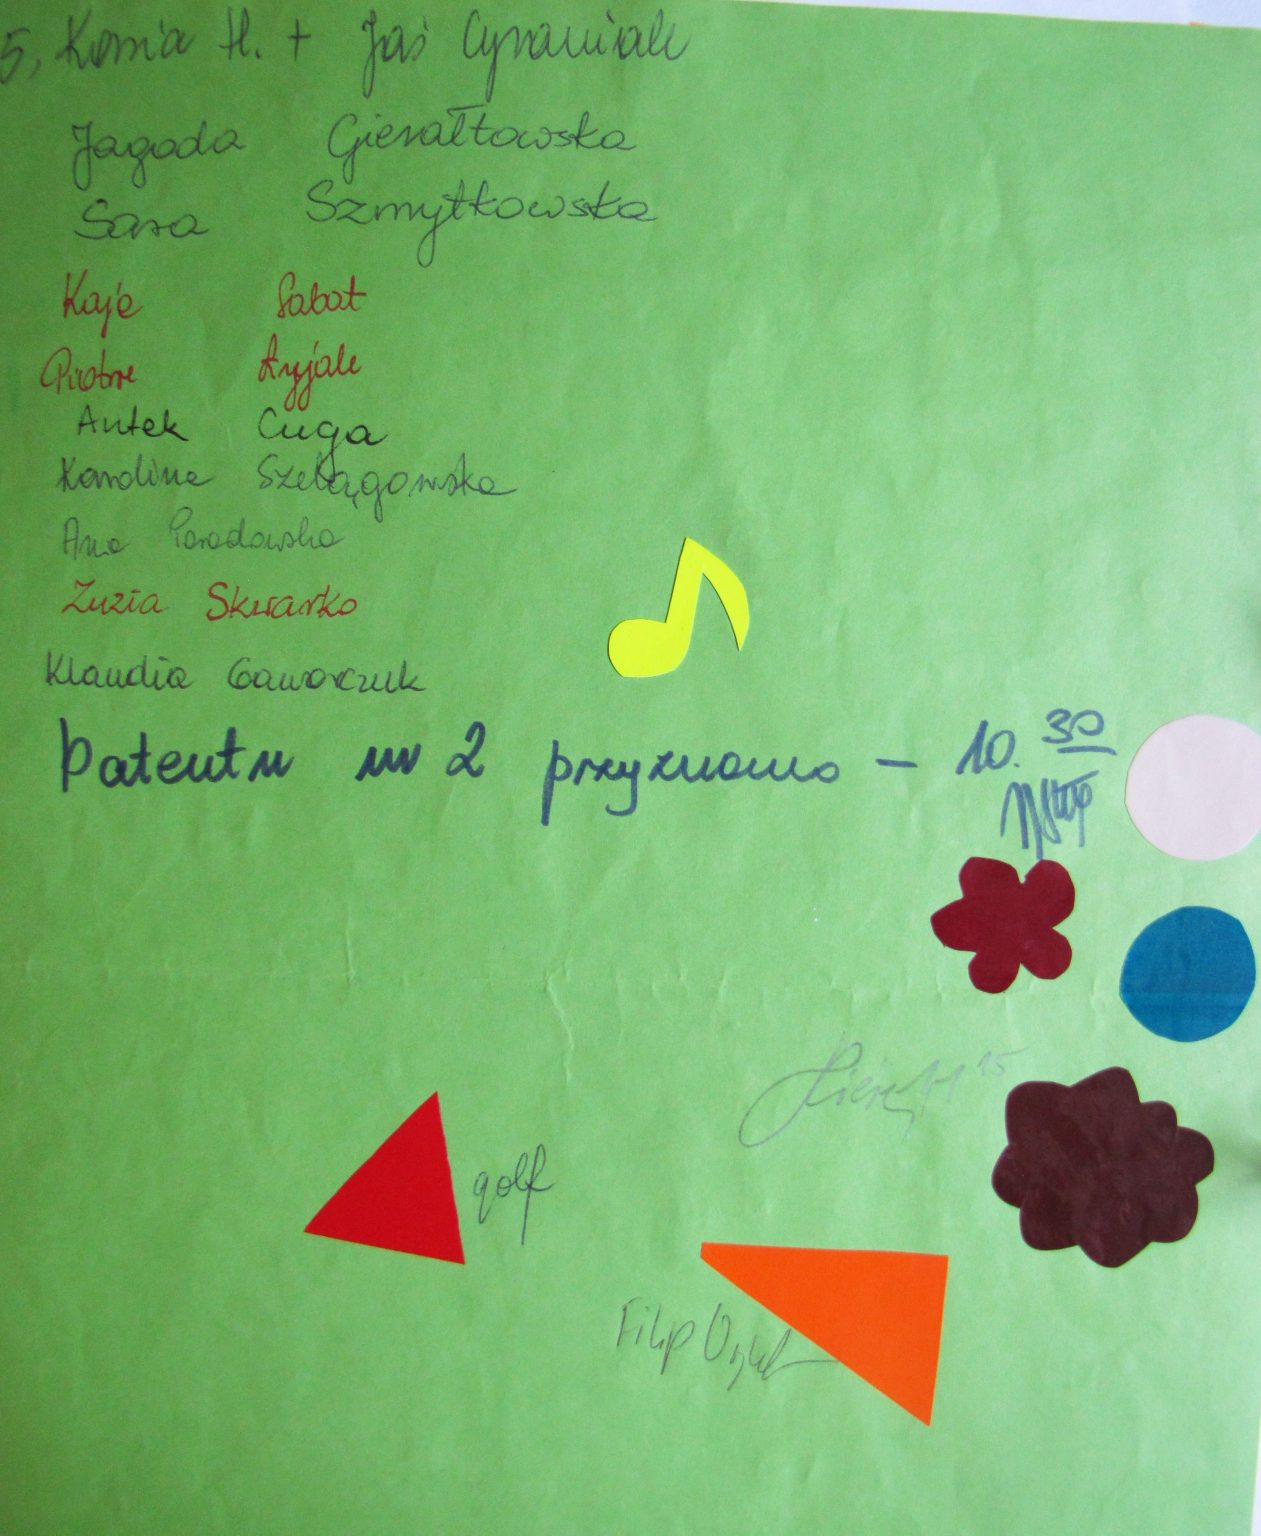 5, Kasia H. + Jaś Cyraniak
Jagoda Gierałtowska
Sara Szmytkowska
Kaja Sabat
Piotr
Antek Cuga
Karolina Szelągowska
Ana Paradowska
Zuzia Skwarko
Klaudia Gaworczuk
Patentu nr 2 przyznano - 10.30
golf
Filip